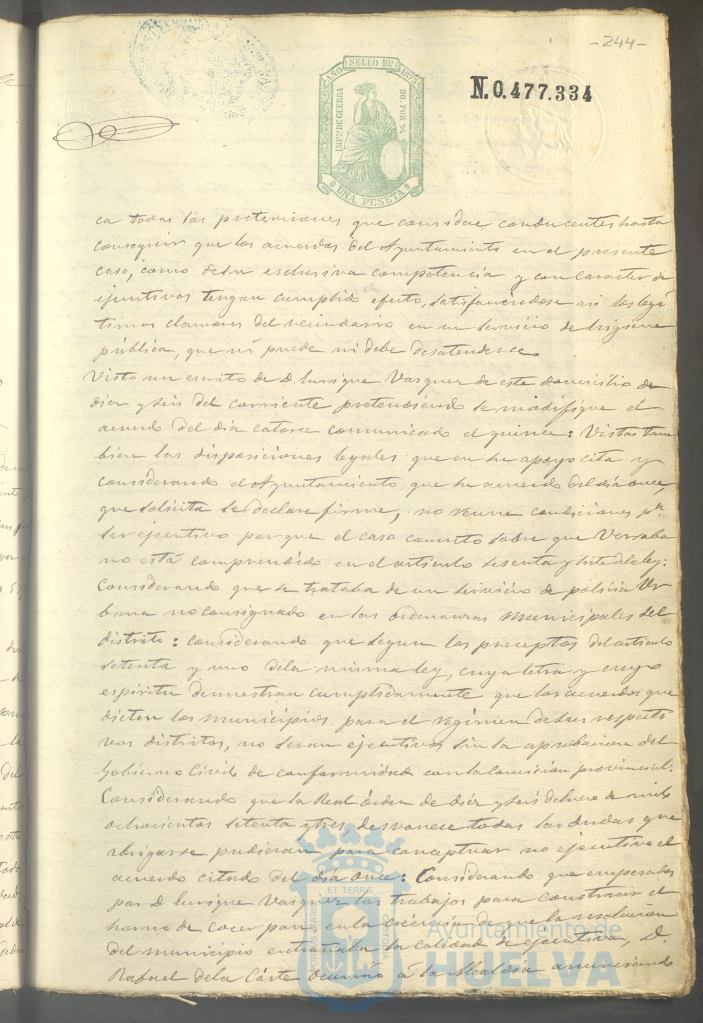 -244-
AÑO SELLO 10º 1875
IMPTO DE GUERRA
50 POR %
UNA PESETA
N.0.477.334
ca todas las pretensiones que considere conducentes hasta
conseguir que los acuerdos del Ayuntamiento en el presente
caso, como de su esclusiva competencia y con caracter de
ejecutivos tengan cumplido efecto, satisfaciendose asi los legí
timos clamores del vecindario en un servicio de higiene
pública, que ni puede ni debe desatenderse.
Visto un escrito de D. Enrique Vazquez de este domicilio de
diez y seis del corriente pretendiendo se modifique el
acuerdo del dia catorce comunicado el quince: Vistas tam
bien las disposiciones legales que en su apoyo cita y
considerando el Ayuntamiento que su acuerdo del dia once,
que solicita se declare firme, no reune condiciones pa
ser ejecutivo por que el caso concreto sobre que versaba
no está comprendido en el articulo sesenta y siete de la ley:
Considerando que se trataba de un servicio de policia Ur
bana no consignado en las ordenanzas municipales del
distrito: considerando que segun los preceptos del articulo
setenta y uno de la misma ley, cuya letra y cuyo
espiritu demuestran cumplidamente que los acuerdos que
dicten los municipios para el régimen de sus respecti
vos distritos, no seran ejecutivos sin la aprobacion del
Gobierno Civil de conformidad con la Comision provincial:
Considerando que la Real órden de diez y seis de Enero de mil
ochocientos setenta y tres, desvanece todas las dudas que
abrigarse pudieran para conceptuar no ejecutivo el
acuerdo citado del dia once: Considerando que empezados
por D. Enrique Vazquez los trabajos para construir el
horno de cocer pan, en la creencia de que la resolucion
del municipio entrañaba la calidad de ejecutiva, D.
Rafael de la Corte ocurrió á la Alcaldia anunciando
ET TERRÆ
PORTUS MARIS
CUSTODIA
Ayuntamiento de
HUELVA